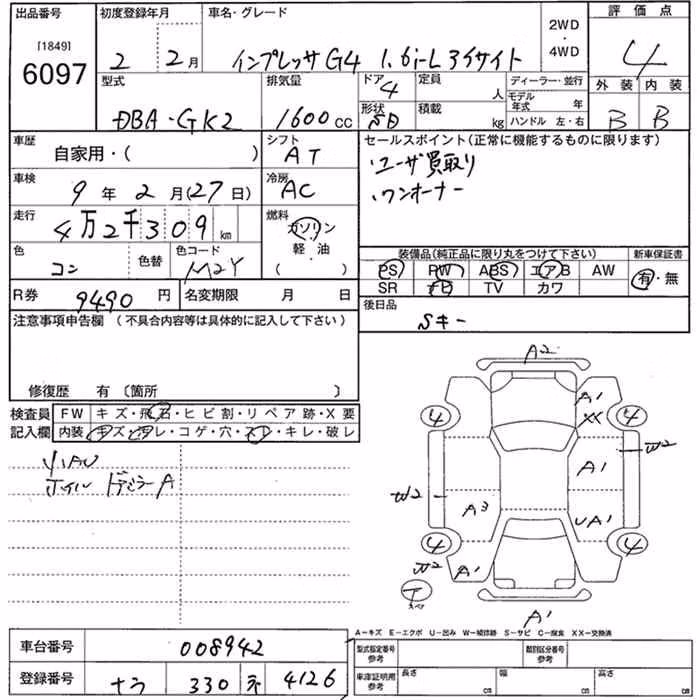 出品番号 初度登録年月 車名・グレード 評価点
[1849]
6097
2 2月 インプレッサG4 1.6i-L アイサイト
2WD
・
4WD
4
型式 排気量 ドア 定員 ディーラー・並行 外装 内装
DBA・GK2 1600cc 4 人 モデル年式 年
形状 積載 ハンドル 左・右
SD kg B B
車歴 シフト セールスポイント(正常に機能するものに限ります)
自家用・( ) AT ・ユーザ買取り
車検 冷房 ・ワンオーナー
9年2月(27日) AC
走行 燃料
4万2千309km ガソリン
軽・油
( )
色 色替 色コード 装備品(純正品に限り丸をつけて下さい) 新車保証書
コン M2Y
PS PW ABS エアB AW 有・無
SR TV カワ
R券 9490円 名変期限 月 日 後日品
Sキー
注意事項申告欄(不具合内容等は具体的に記入して下さい)
修復歴 有〔箇所 〕
検査員 FW キズ・飛石・ヒビ割・リペア跡・X要
記入欄 内装 キズ・コゲ・穴・スレ・キレ・破レ
A2
A1
XX
4 4
W2
A1
W2
A3
UA1
4 4
W2
A1
A1
A−キズ E−エクボ U−凹み W−補修跡 S−サビ C−腐食 XX−交換済
車台番号 008942 型式指定番号 参考 類別区分番号 参考
登録番号 ナラ 330 4126 車庫証明用 参考 長さ cm 幅 cm 高さ cm